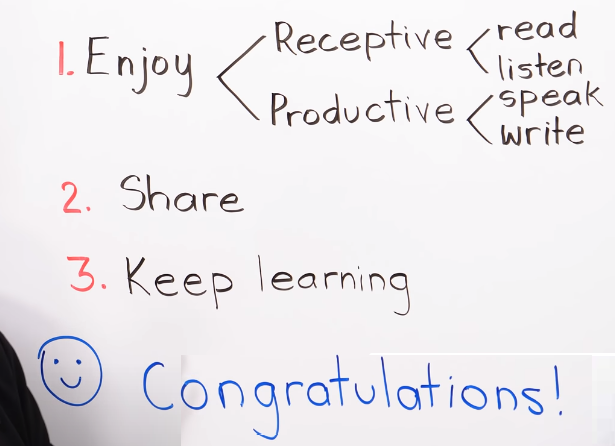 1. Enjoy < Receptive < read
listen
Productive < speak
write
2. Share
3. Keep learning
Congratulations!